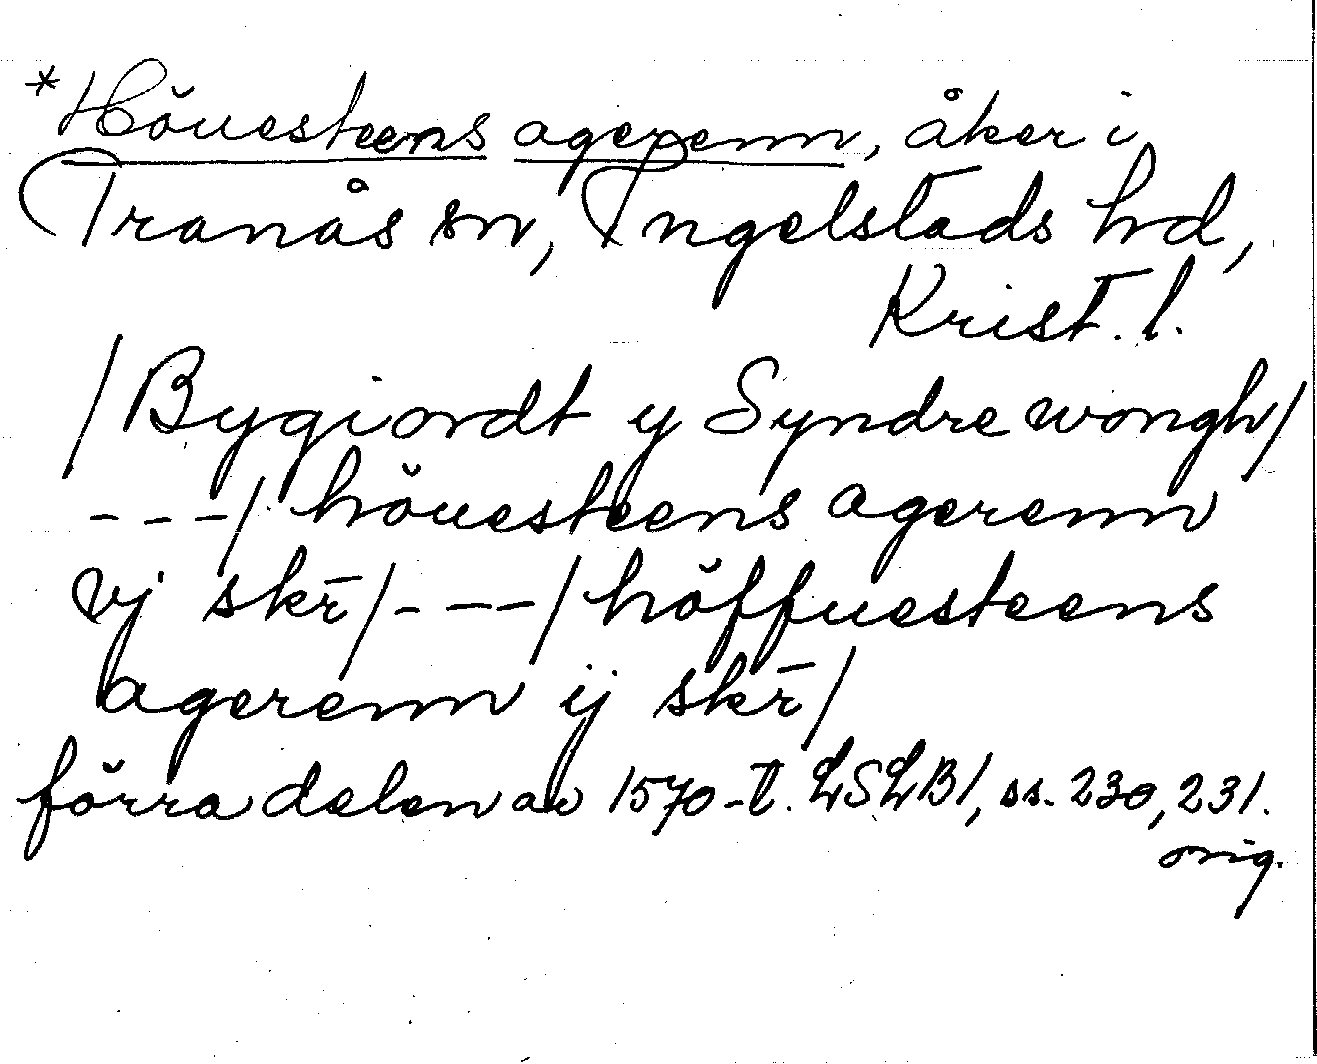 *Hŏuesteens agerenn, åker i
Tranås sn, Ingelstads hd,
Krist. l.
/Bygiordt y Syndre wongh/
---/ hŏuesteens agerenn
vj skr̄/---/ hŏffuesteens
agerenn ij skr̄/
fŏrra delen av 1570-t. LSLB1, ss. 230, 231.
orig.